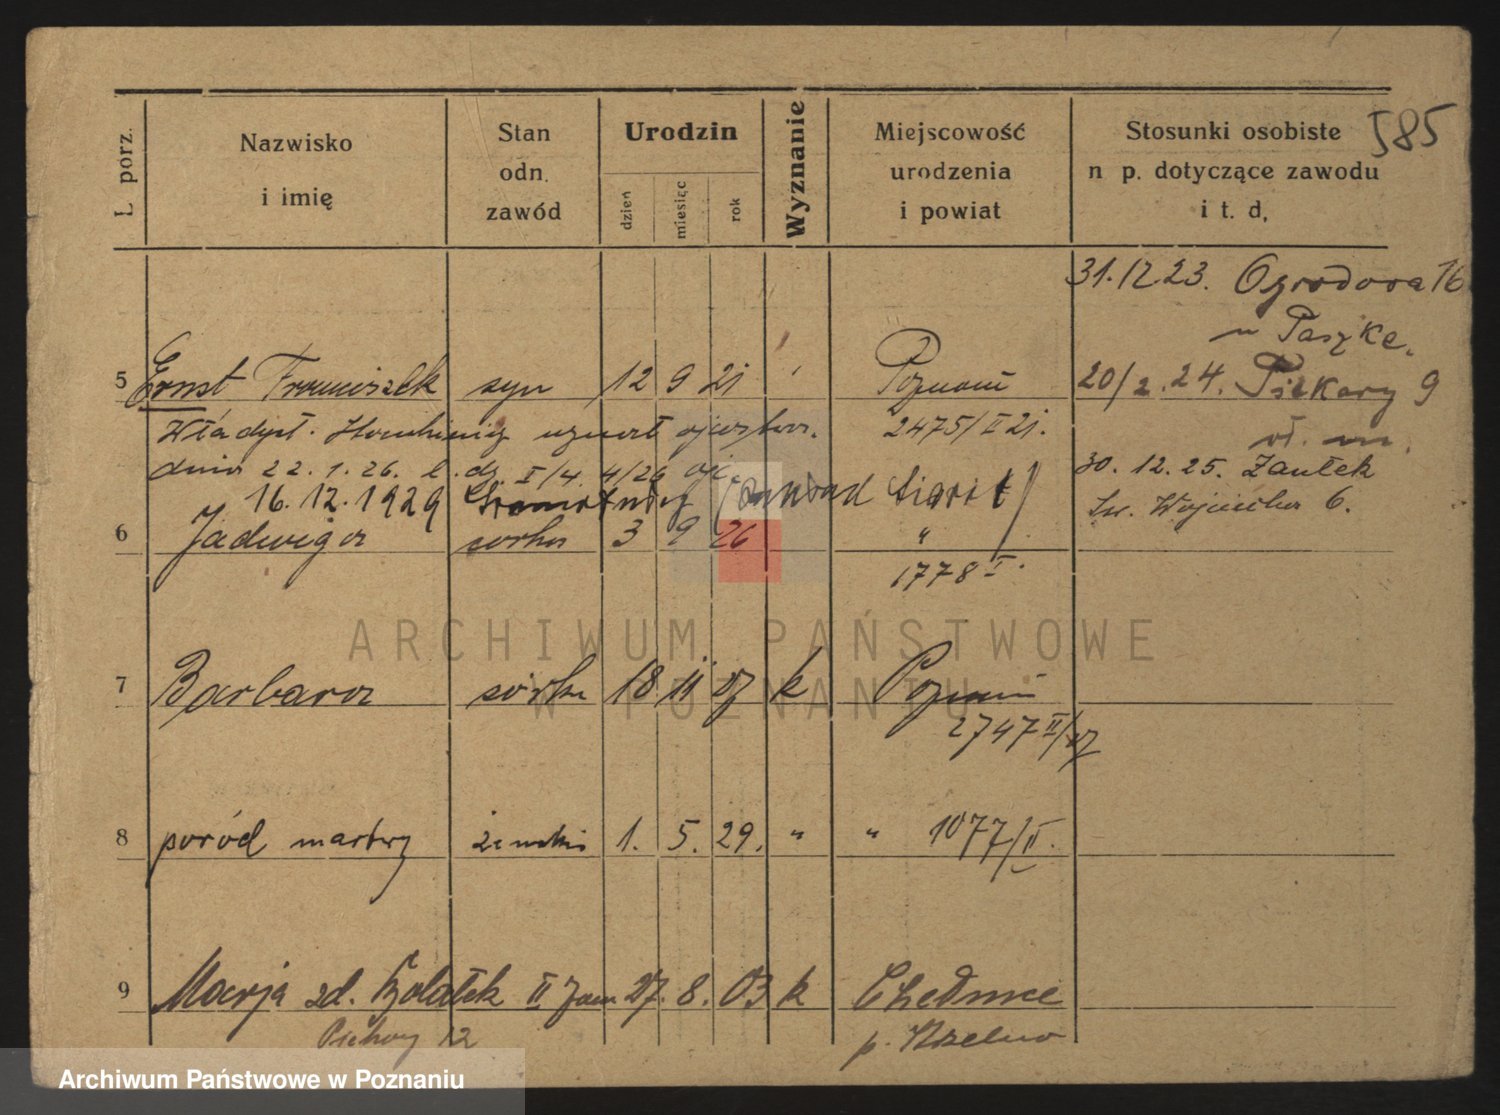 585
L. porz.
Nazwisko
i imię
Stan
odn.
zawód
Urodzin
dzień
miesiąc
rok
Wyznanie
Miejscowość
urodzenia
i powiat
Stosunki osobiste
n p. dotyczące zawodu
i t. d,
31.12 23. Ogrodowa 16
u Paszke.
5 Ernst Franciszek syn 12 9 21 Poznań 20/2. 24. Piekary 9
Władysł. uznał ojcostwo. 2475/II 21.
dnia 22. 1. 26. l. dz. I/4. 4/26
30. 12. 25. Zaułek
16.12.1929
św. Wojciecha 6.
6 Jadwiga córka 3 9 26 "
1778 I.
7 Barbara córka 18 11 27 k Poznań
2747 II/27
8 poród martwy żeński 1. 5. 29. " " 1077/II.
9 Marja zd. II 27. 8. 03 k
Piekary 12 p. Strzelno
ARCHIWUM PAŃSTWOWE
W POZNANIU
Archiwum Państwowe w Poznaniu